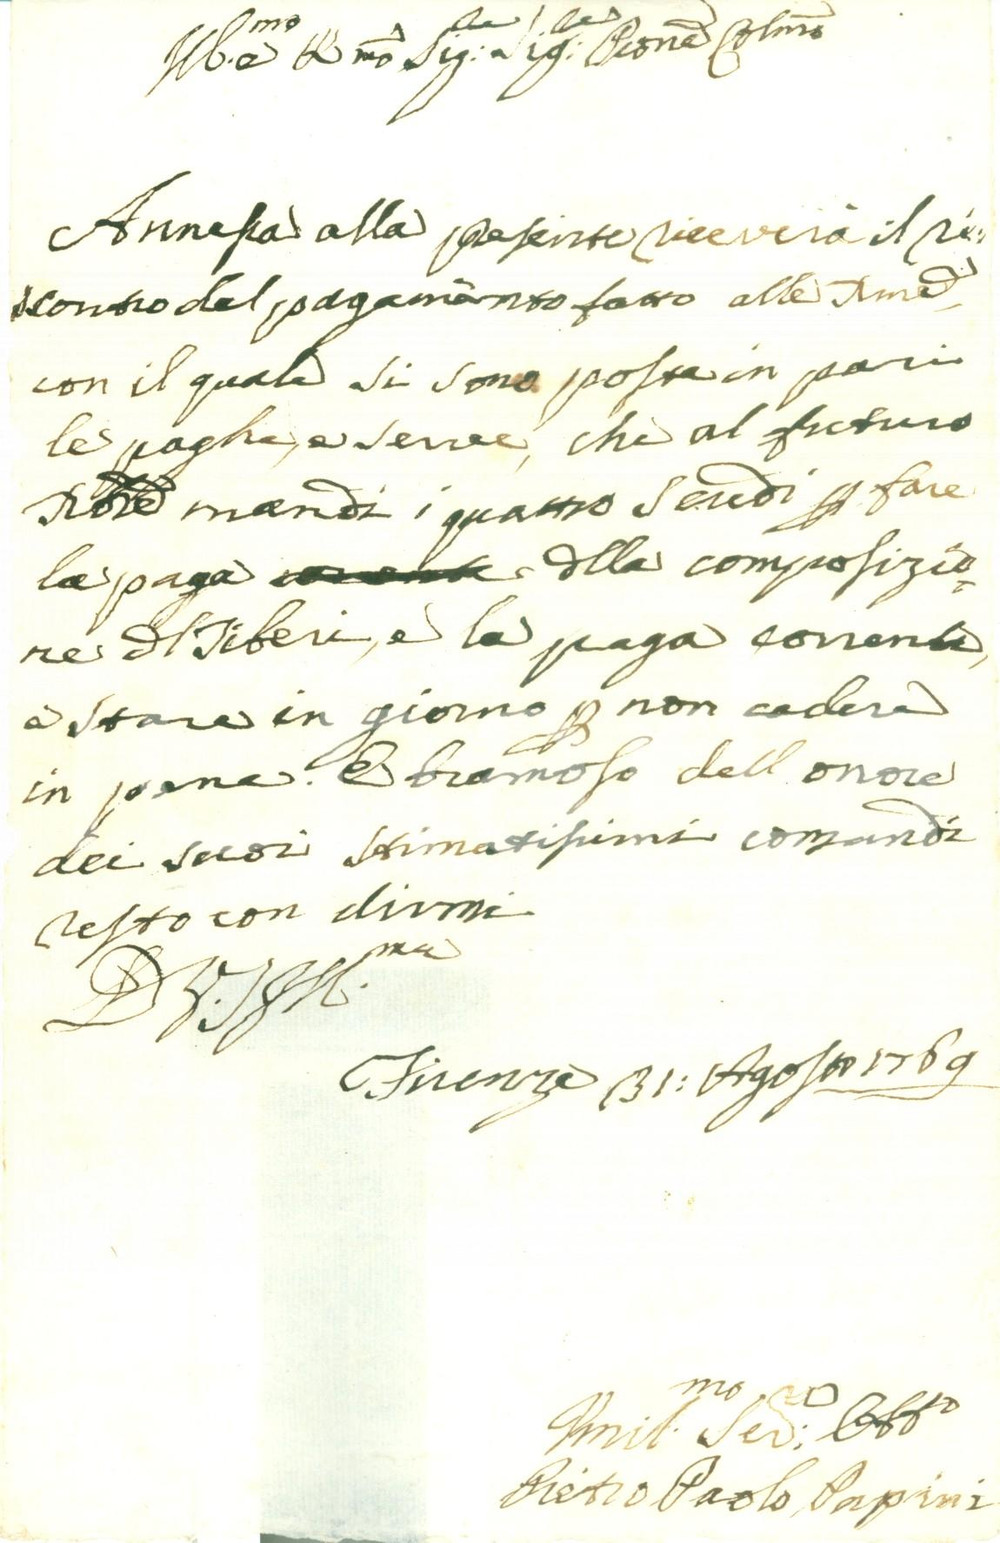 Ill.mo e R.mo Sig.re Sig.re Prone Colmo
Annessa alla presente riceverà il ri
scontro del pagamento fatto alle
con il quale si sono poste in pari
le paghe, e serve, che al futuro
mandi i quattro Scudi p fare
la paga della composizio
ne dl Tiberi, e la paga corrente,
e stare in giorno p non cadere
in pena. E bramoso dell onore
dei suoi stimatissimi comandi
resto con
D V. S Ill.ma
Firenze 31: Agosto 1769
Umil.mo Ser.: Obbo
Pietro Paolo Papini